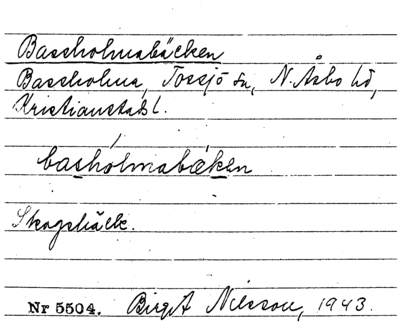 Bassholmabäcken
Bassholma, Tossjö sn, N. Åsbo hd,
Kristianstads l.
basholmabæken
Skogsbäck.
Nr 5504. Birgit Nilsson, 1943.